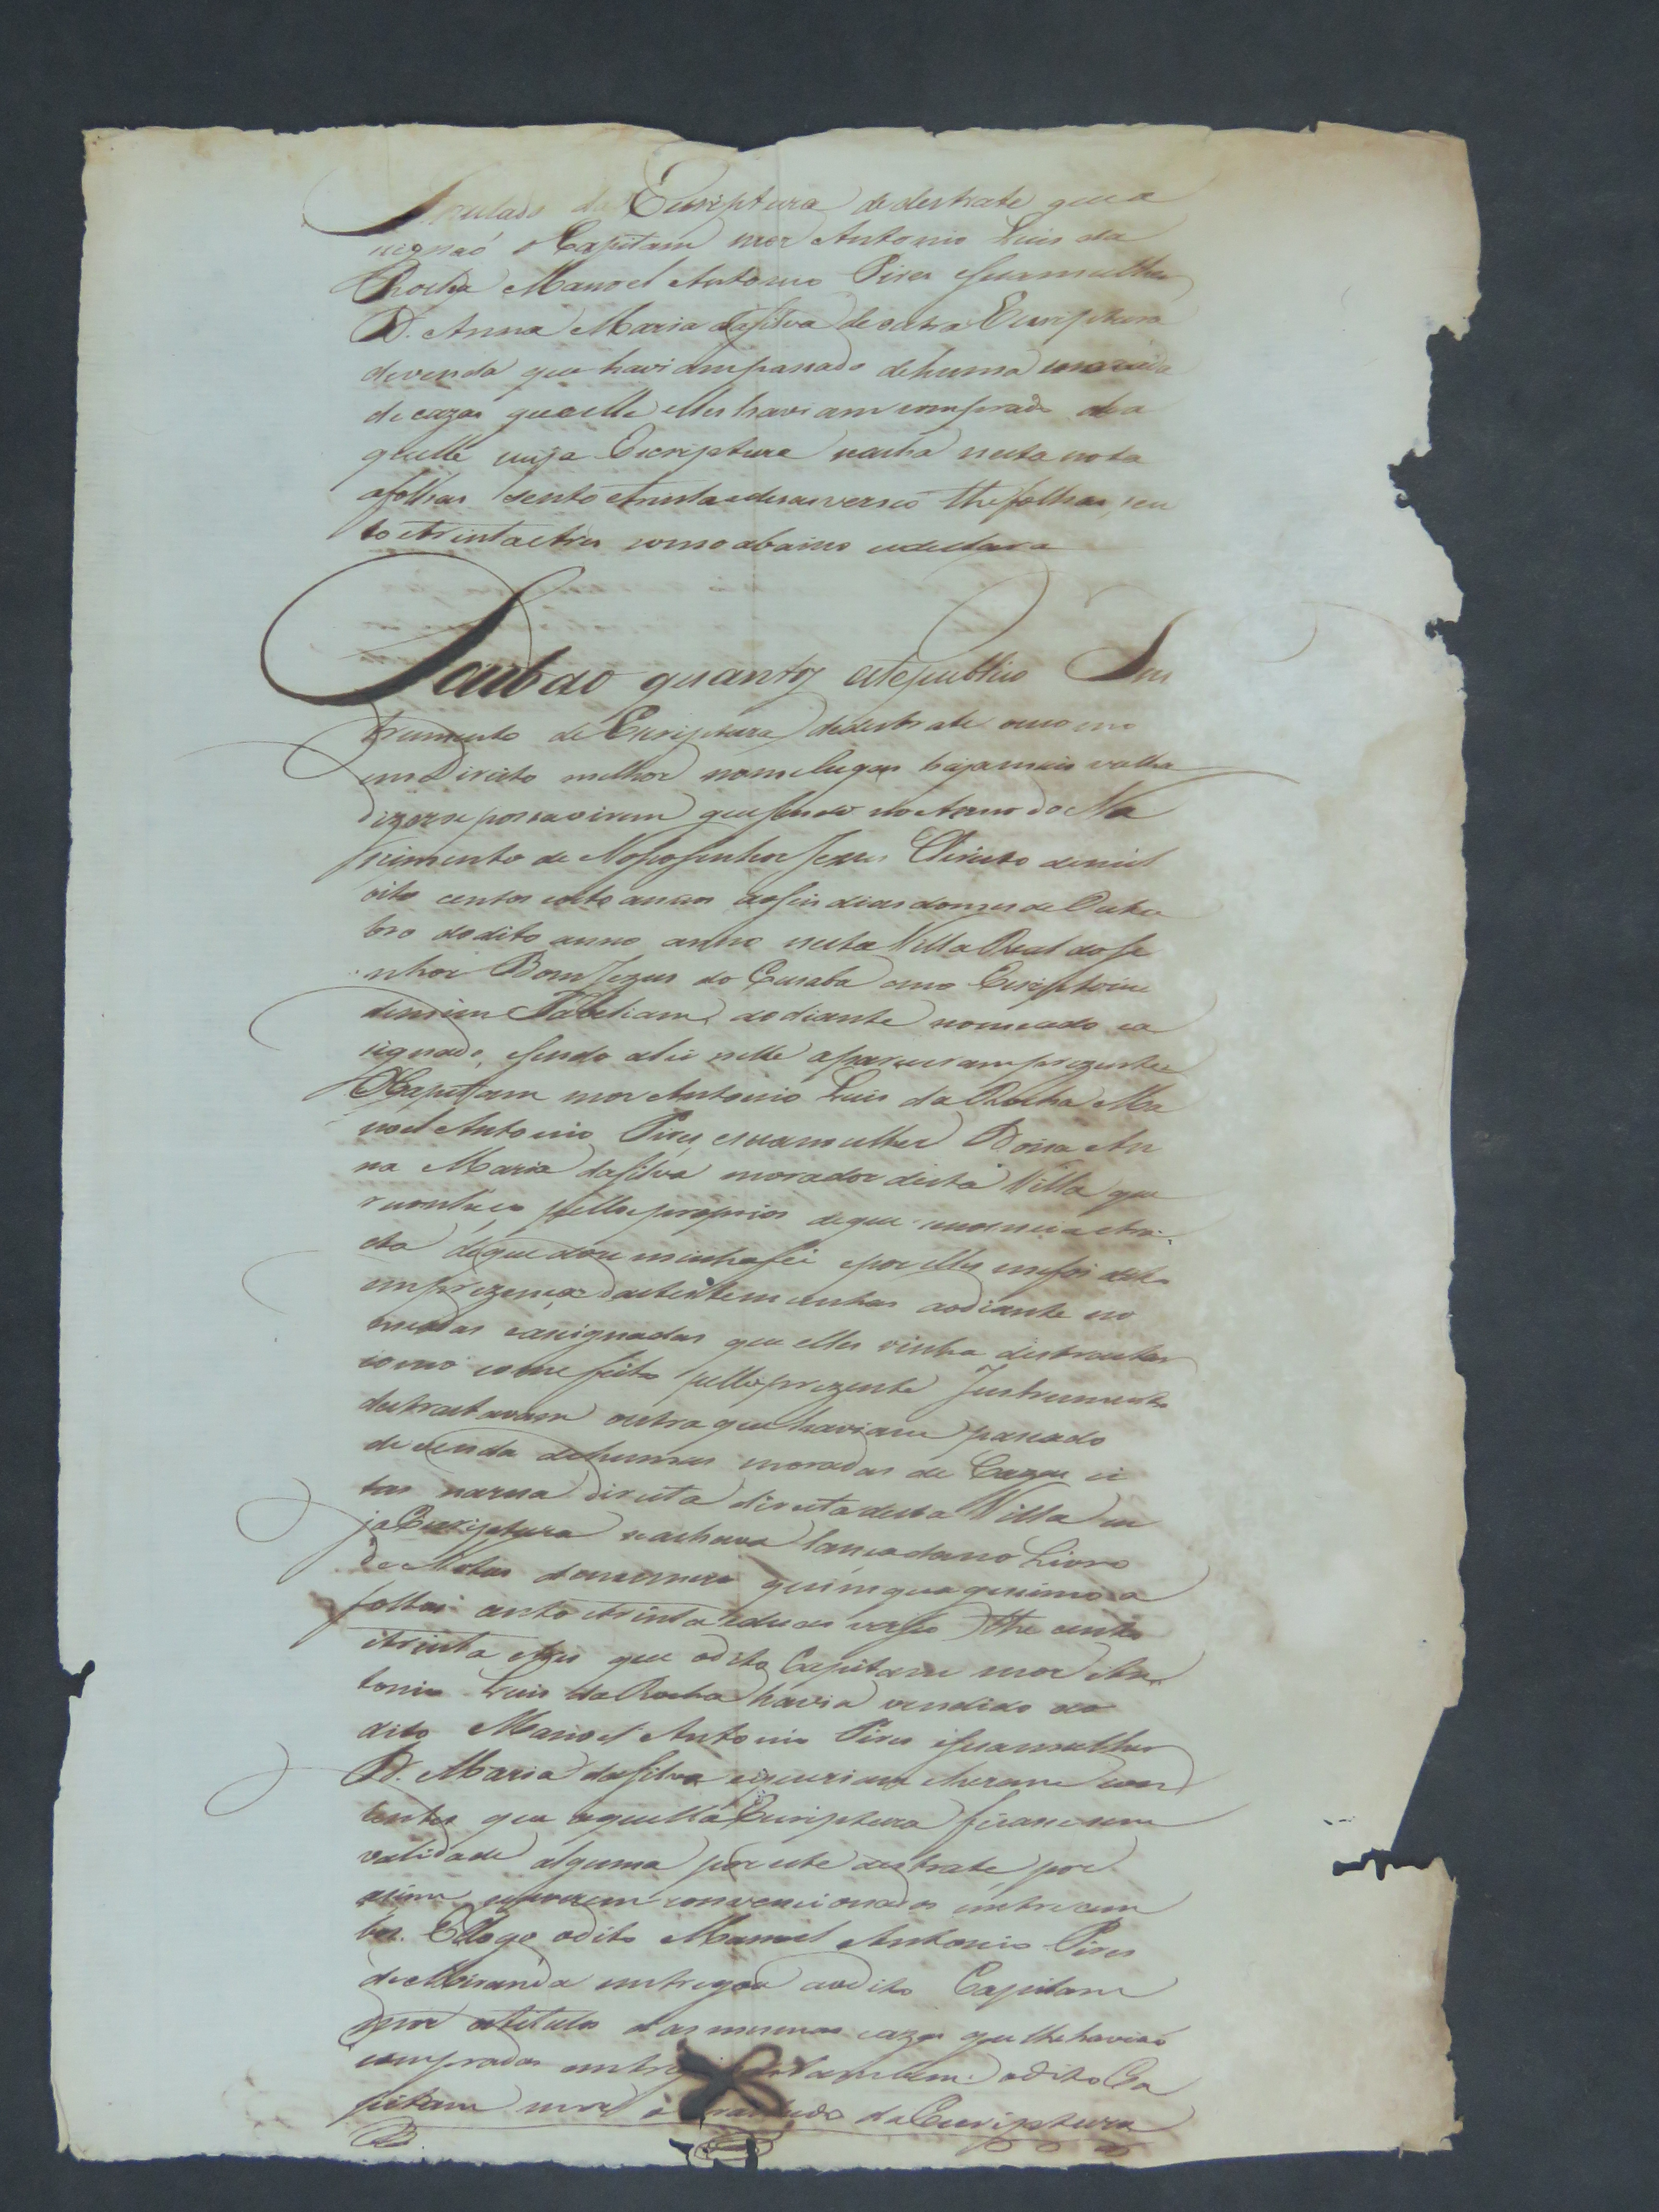 Traslado da Escriptura de destrate que a
signaó o Capitam mor Antonio Luis da
Rocha Manoel Antonio Pires e sua mulher
D. Anna Maria da Silva de outra Escriptura
de venda que haviam passado de huma morada
de cazas que elle elles haviam comprado da
quelle cuja Escriptura se acha nesta nota
a folhas sento e trinta e duas verso the folhas sen
to e trinta e tres como abaixo se declara
Saibao quantos este publico Ins
trumento de Escriptura de destrate ou como
em Direito melhor nome lugar haja e mais valha
dizerse possa virem que sendo no Anno do Na
scimento de Nosso Senhor Jezus Christo de mil
oito centos e oito annos aos seis dias do mes de Outu
bro do dito anno annos nesta Villa Real do Se
nhor Bom Jezus do Cuiaba em o Escriptorio
de mim Tabeliam ao diante nomeado e a
signado, e sendo ali nelle apareceram prezentes
O Capitam mor Antonio Luis da Rocha Ma
noel Antonio Pires, e sua mulher Dona An
na Maria da Silva morador desta Villa que
reconheco pellos proprios de que
de que dou minha fé e por elles me foi dito
em prezença das testemunhas ao diante no
meadas e asignadas que elles vinha destratar
como com efeito pello prezente Instrumento
destratavam outra que haviam pasado
de venda de humas moradas de Cazas ci
tas na rua direita direita desta Villa cu
ja Escriptura se achava lancada no Livro
de Notas do numero quinquagesimo a
folhas cento e trinta e duas verso the cento
e trinta e tres que o dito Capitam mor An
tonio Luis da Rocha havia vendido ao
dito Manoel Antonio Pires e sua mulher
D. Maria da Silva e queriam e heram con
tentes que aquella Escriptura ficase sem
validade alguma por este destrate por
asim convencionados entre am
bos. E logo o dito Manoel Antonio Pires
de Miranda entregou ao dito Capitam
mor o titulos das mesmas cazas que lhe havia
comprados tambem o dito Ca
pitam mor o traslado da Escriptura